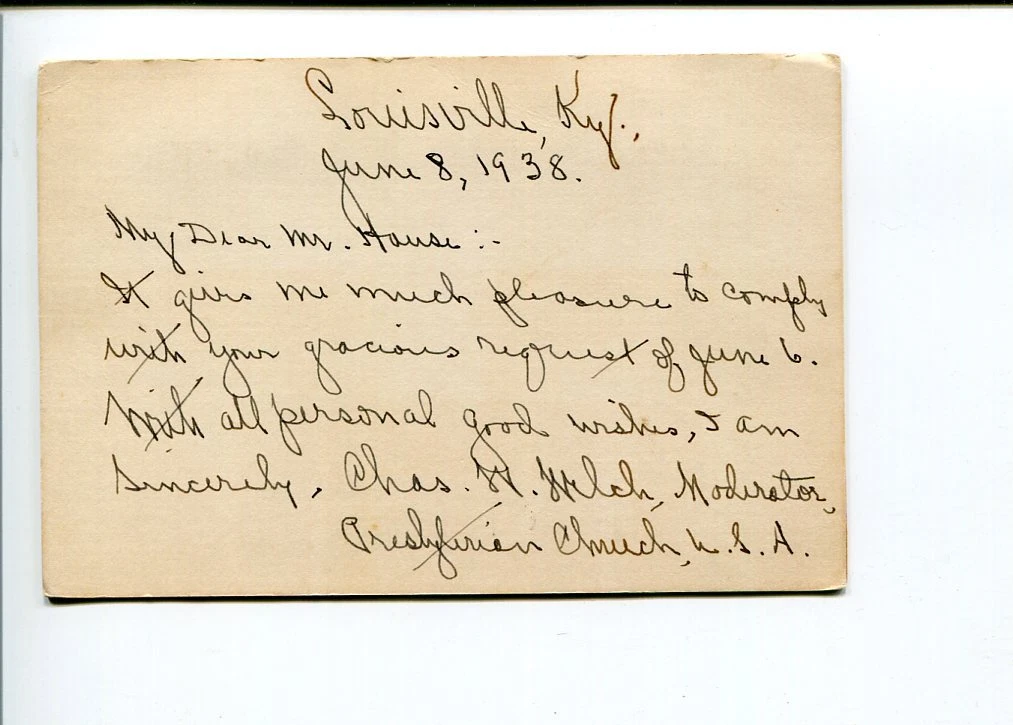 Louisville, Ky.,
June 8, 1938.
My Dear Mr. House :-
It gives me much pleasure to comply
with your gracious request of June 6.
With all personal good wishes, I am
Sincerely, Chas. W. Welch, Moderator,
Presbyterian Church, U. S. A.